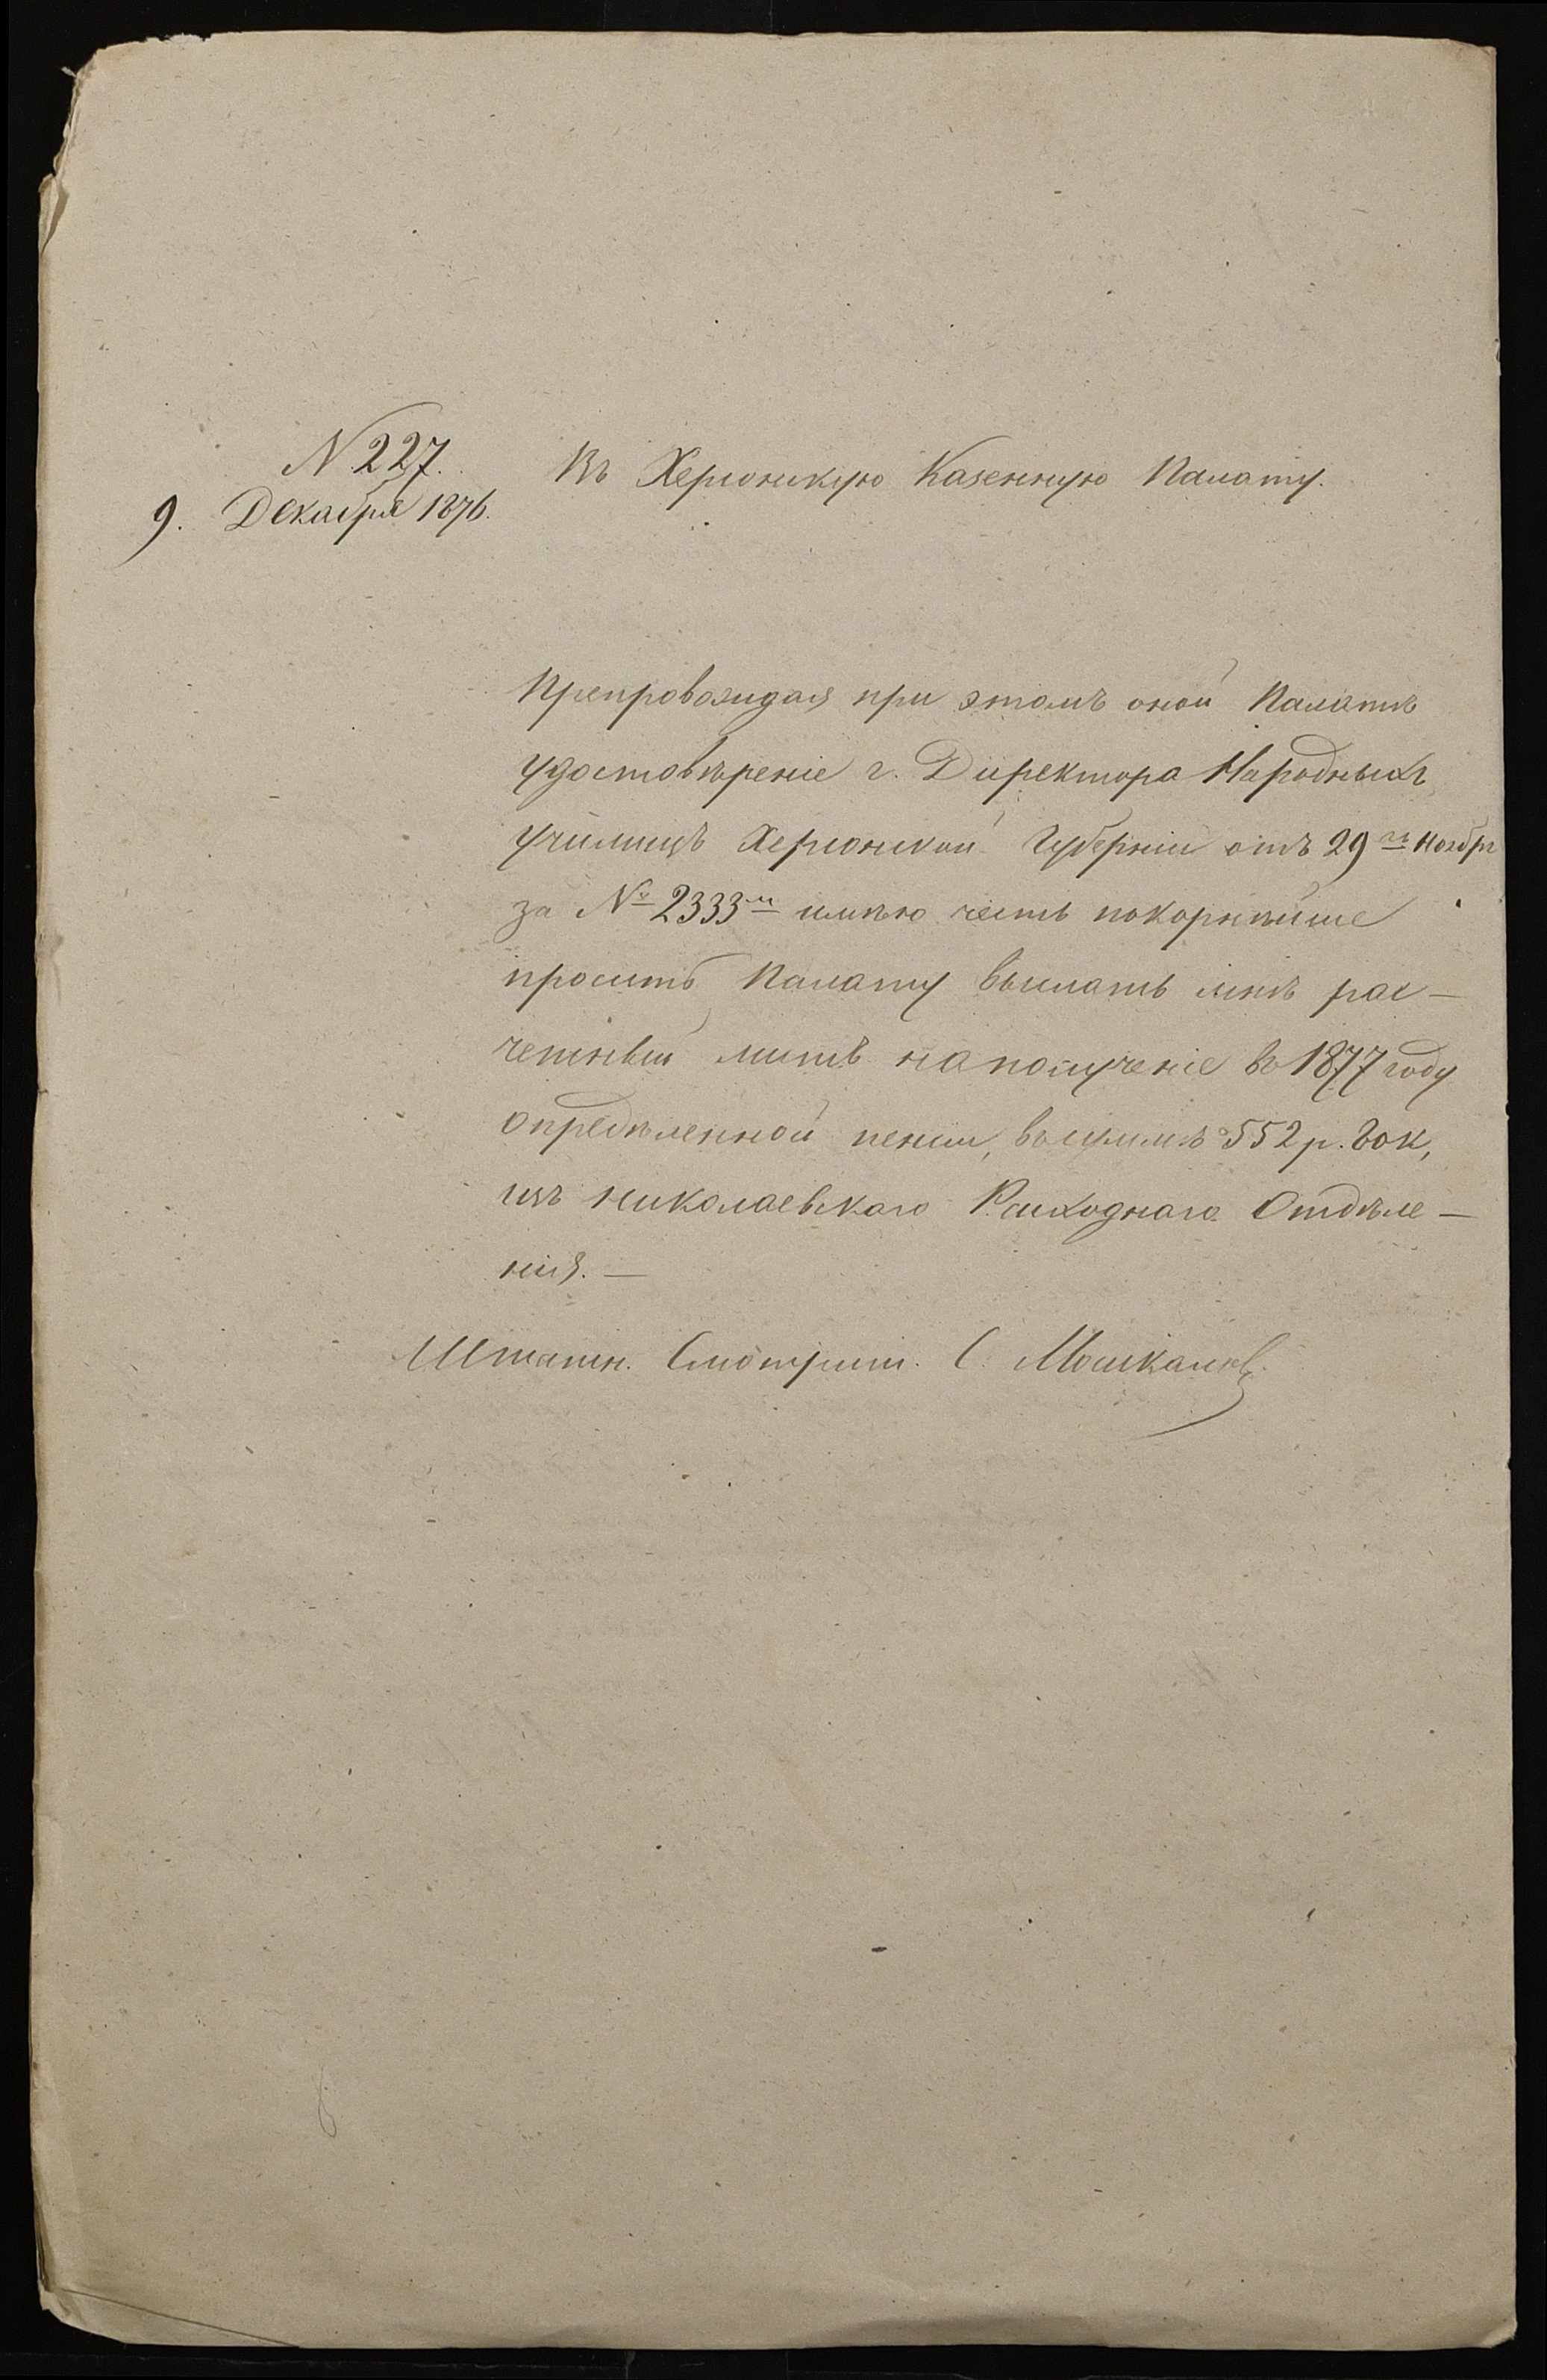 № 227.
9. Декабря 1876.
Въ Херсонскую Казенную Палату.
Препровождая при этомъ оной Палатѣ
удостовѣреніе г. Директора Народныхъ
училищъ Херсонской Губерніи отъ 29го Ноября
за № 2333м имѣю честь покорнѣйше
просить Палату выслать мнѣ рас-
четный листъ на полученіе въ 1877 году
опредѣленной пенсіи, въ суммѣ 552 р. к,
изъ николаевскаго Расходнаго Отдѣле-
нія. —
Штатн. Смотрит. С.